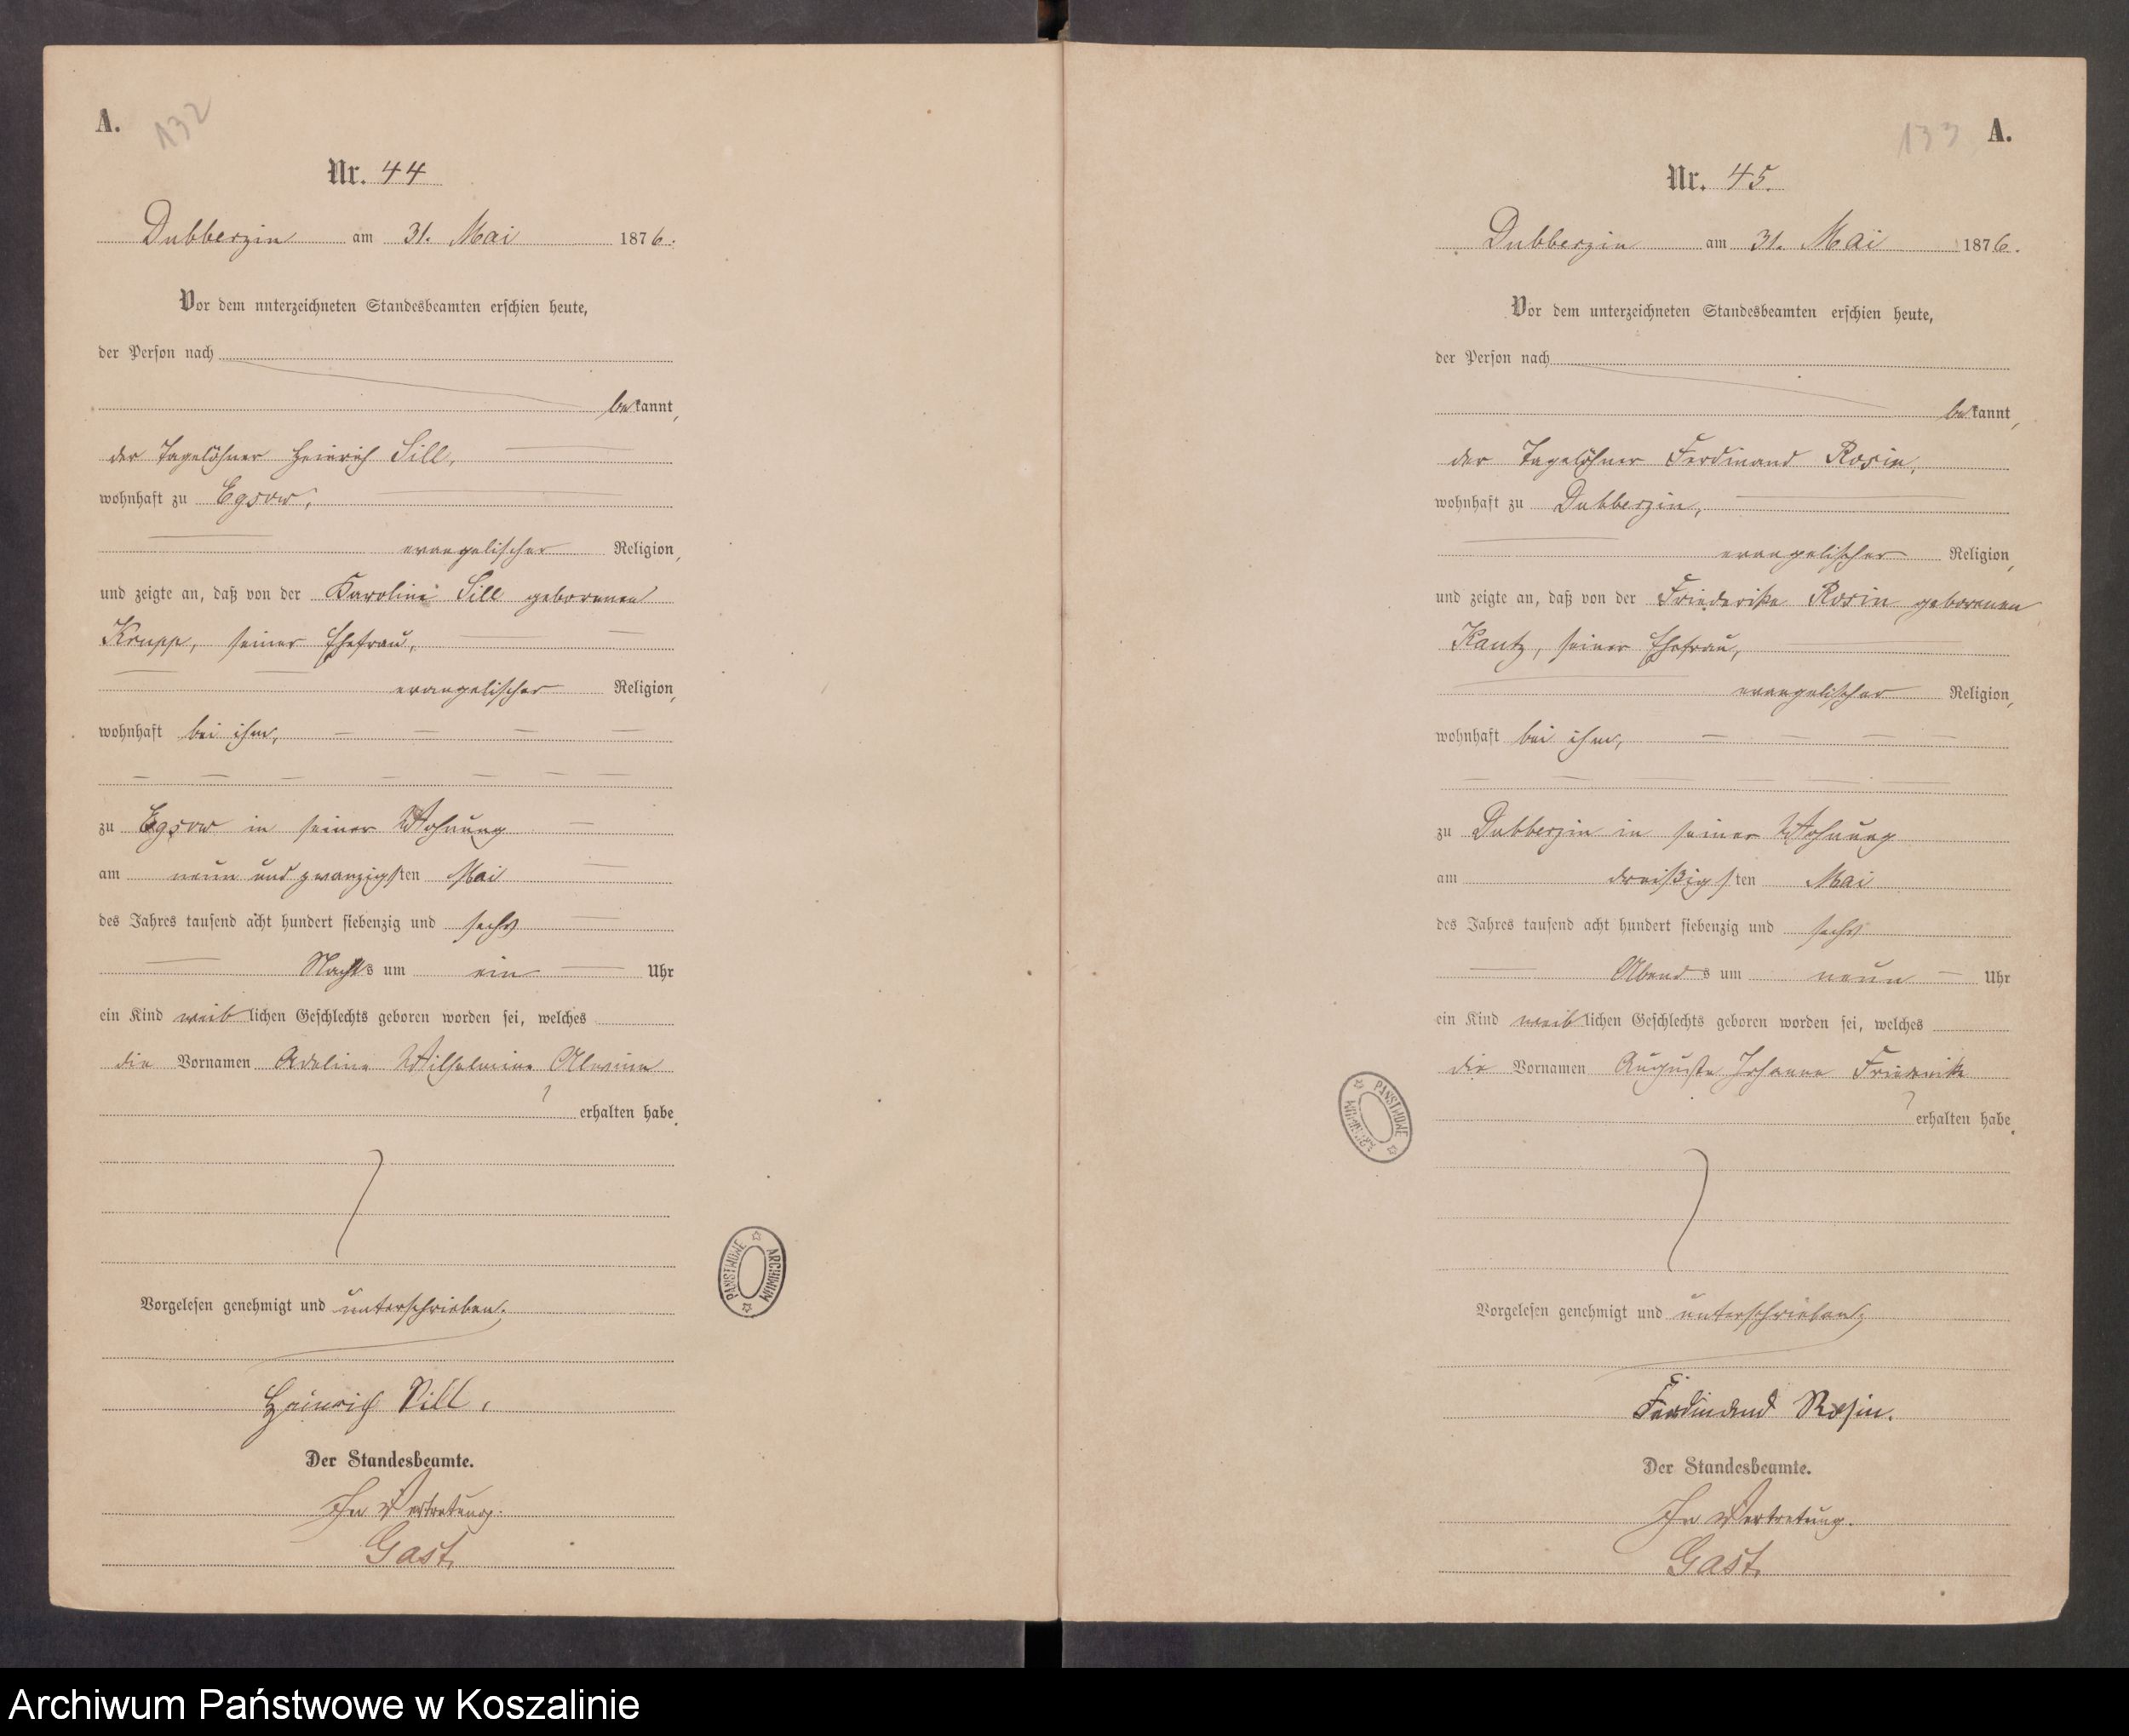 A.
132
Nr. 44
Dubberzin am 31. Mai 1876.
Vor dem unterzeichneten Standesbeamten erschien heute,
der Person nach
bekannt,
der Tagelöhner Heinrich Sill,
wohnhaft zu Egsow,
evangelischer Religion,
und zeigte an, daß von der Karoline Sill geborenen
Krupp, seiner Ehefrau,
evangelischer Religion,
wohnhaft bei ihm,
zu Egsow in seiner Wohnung
am neun und zwanzigsten Mai
des Jahres tausend acht hundert siebenzig und sechs
Nachts um ein Uhr
ein Kind weiblichen Geschlechts geboren worden sei, welches
die Vornamen Adeline Wilhelmine Alwine
erhalten habe.
Vorgelesen genehmigt und unterschrieben.
Heinrich Sill,
Der Standesbeamte.
In Vertretung.
Gast.
PAŃSTWOWE ARCHIWUM
133
A.
Nr. 45.
Dubberzin am 31. Mai 1876.
Vor dem unterzeichneten Standesbeamten erschien heute,
der Person nach
bekannt,
der Tagelöhner Ferdinand Rosin,
wohnhaft zu Dubberzin,
evangelischer Religion,
und zeigte an, daß von der Friederike Rosin geborenen
Kautz, seiner Ehefrau,
evangelischer Religion,
wohnhaft bei ihm,
zu Dubberzin in seiner Wohnung
am dreißigsten Mai
des Jahres tausend acht hundert siebenzig und sechs
Abends um neun Uhr
ein Kind weiblichen Geschlechts geboren worden sei, welches
die Vornamen Auguste Johanne Friederike
erhalten habe.
Vorgelesen genehmigt und unterschrieben,
Ferdinand Rosin.
Der Standesbeamte.
In Vertretung.
Gast.
PAŃSTWOWE ARCHIWUM
Archiwum Państwowe w Koszalinie